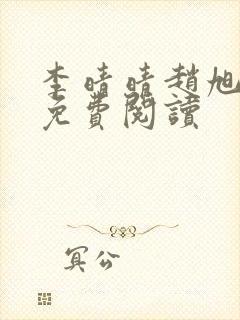 李晴晴趙旭
免費閱讀
冥公